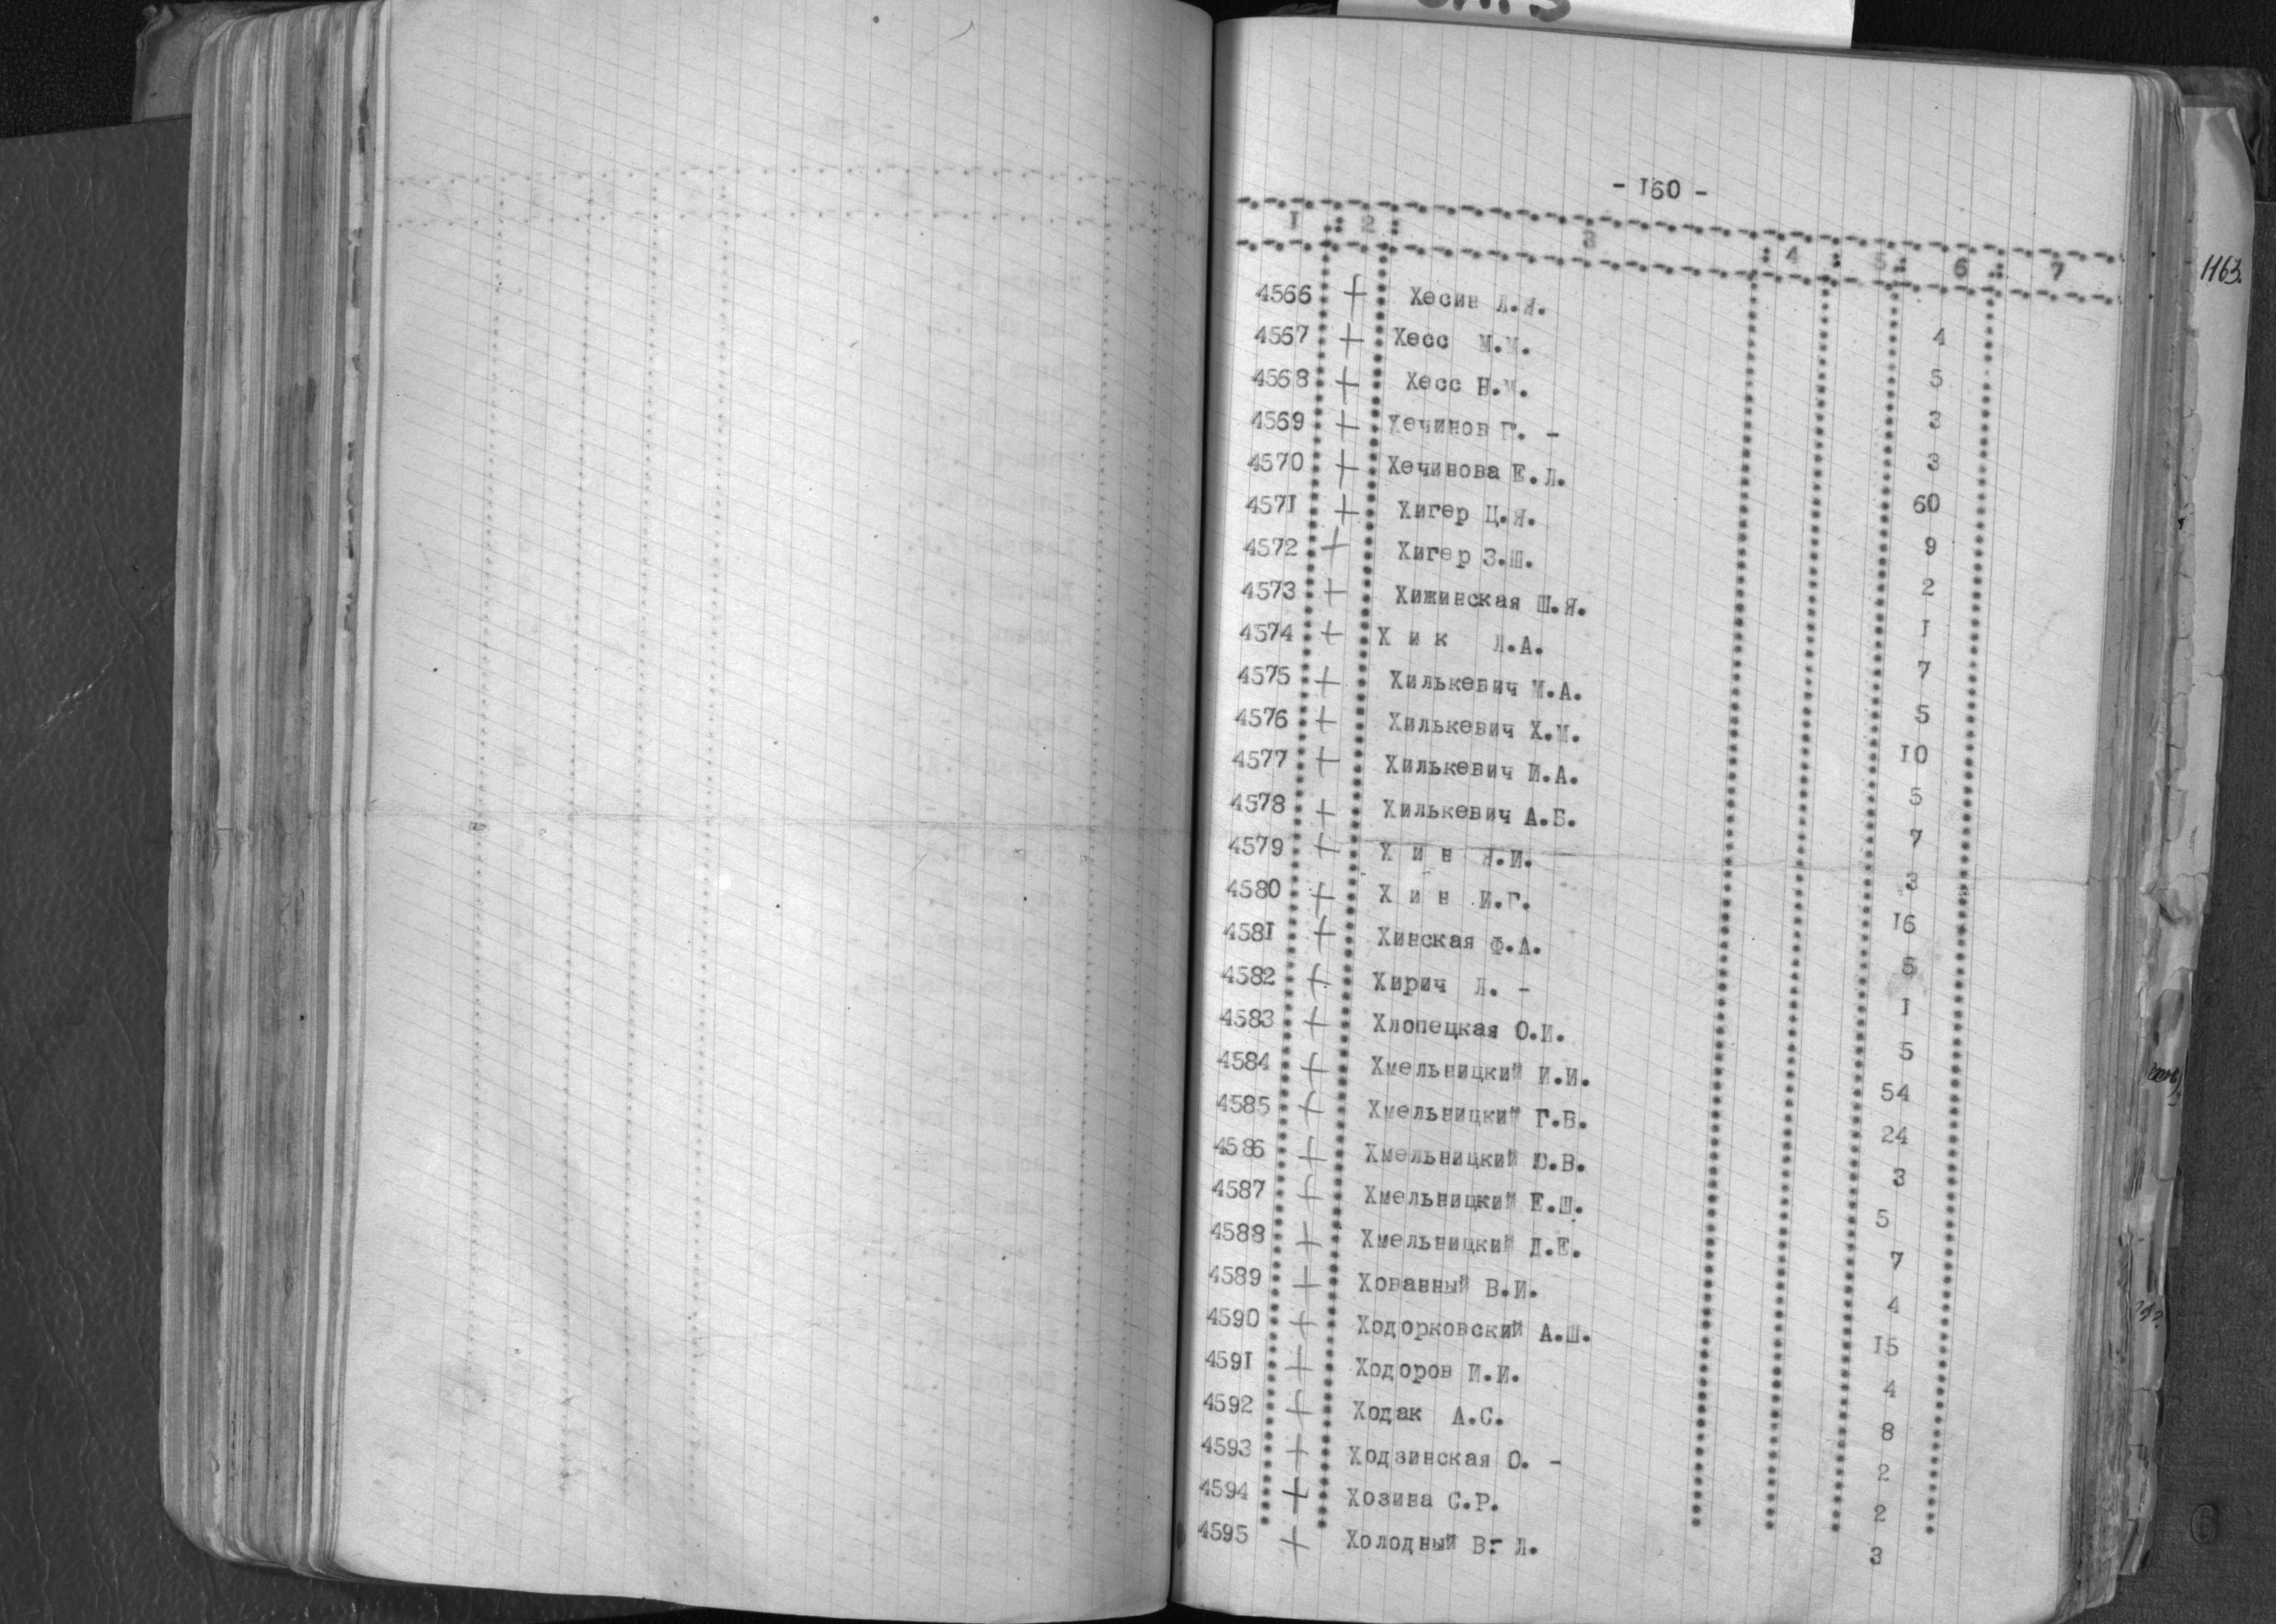 - I60 -
I : 2 : 3 : 4 : 5 : 6 : 7
1163.
4566 + Хесин Л.Я. 4
4567 + Хесс М.М. 5
4568 + Хесс Н.М. 3
4569 + Хечинов Г. - 3
4570 + Хечинова Е.Л. 60
457I + Хигер Ц.Я. 9
4572 + Хигер З.Ш. 2
4573 + Хижинская Ш.Я. I
4574 + Х и к Л.А. 7
4575 + Хилькевич М.А. 5
4576 + Хилькевич Х.М. I0
4577 + Хилькевич И.А. 5
4578 + Хилькевич А.Б. 7
4579 + Х и н Я.И. 3
4580 + Х и н И.Г. I6
458I + Хинская Ф.А.
4582 + Хирич Л. - I
4583 + Хлопецкая О.И. 5
4584 + Хмельницкий И.И. 54
4585 + Хмельницкий Г.В. 24
4586 + Хмельницкий Ю.В. 3
4587 + Хмельницкий Е.Ш. 5
4588 + Хмельницкий Д.Е. 7
4589 + Хованный В.И. 4
4590 + Ходорковский А.Ш. I5
459I + Ходоров И.И. 4
4592 + Ходак А.С. 8
4593 + Ходзинская О. - 2
4594 + Хозина С.Р. 2
4595 + Холодный В. Л. 3